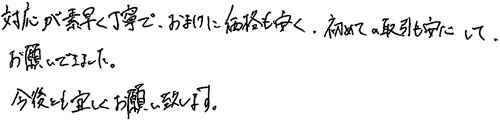 対応が素早く丁寧で、おまけに価格も安く、初めての取引も安心して、
お願いできました。
今後とも宜しくお願い致します。